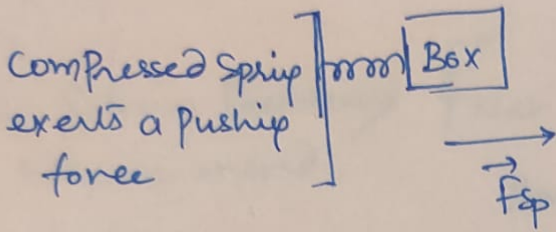 Compressed Spring
exerts a Pushing
force
Box
F⃗sp